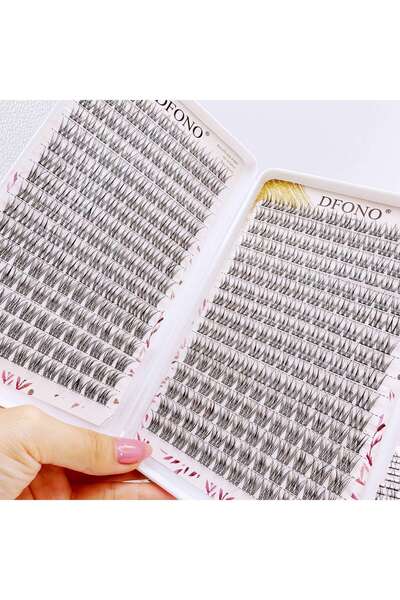 DFONO®
DFONO®